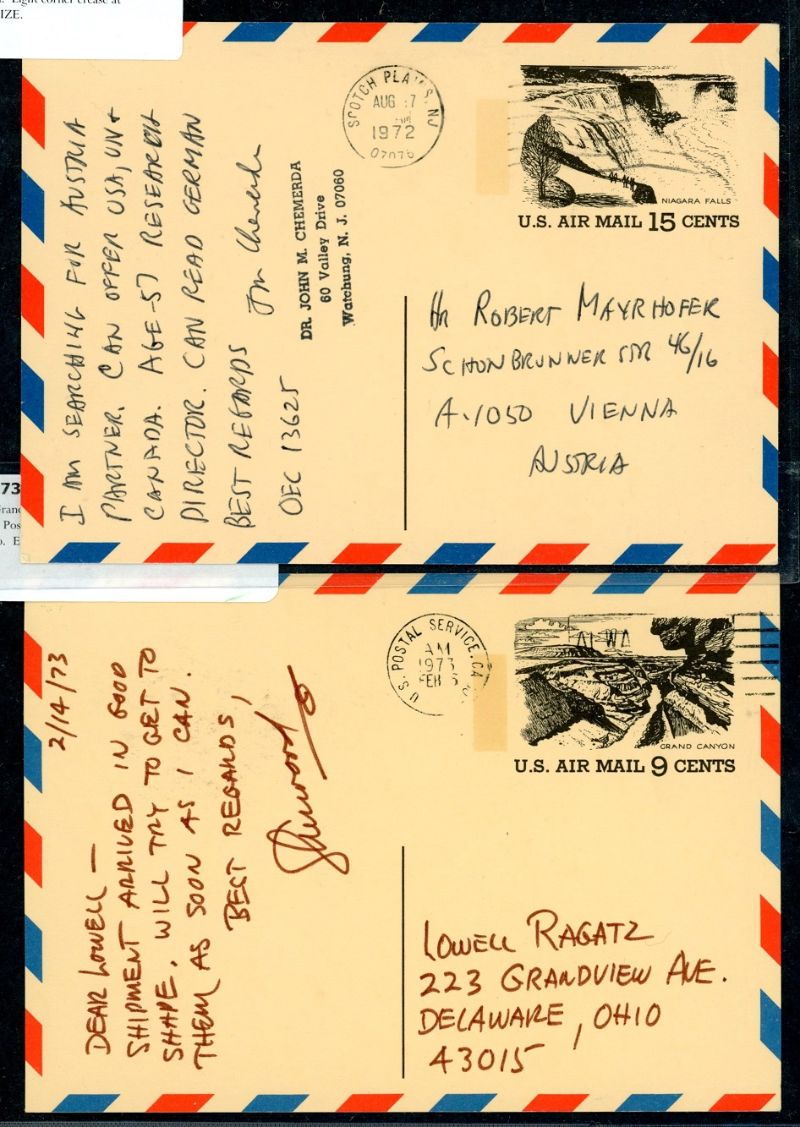 IZE.
I AM SEARCHING FOR AUSTRIA
PARTNER. CAN OFFER USA, UN &
CANADA. AGE-57 RESEARCH
DIRECTOR. CAN READ GERMAN
BEST REGARDS
OEC 13625
DR. JOHN M. CHEMERDA
60 Valley Drive
Watchung, N. J. 07060
SCOTCH PLAINS, NJ
AUG 17
1972
07076
NIAGARA FALLS
U.S. AIR MAIL 15 CENTS
Hr ROBERT MAYRHOFER
SCHONBRUNNER STR 46/16
A-1050 VIENNA
AUSTRIA
73
Grand
Pos
E
2/14/73
DEAR LOWELL —
SHIPMENT ARRIVED IN GOOD
SHAPE. WILL TRY TO GET TO
THEM AS SOON AS I CAN.
BEST REGARDS,
Sherwood
U.S. POSTAL SERVICE, CA
AM
1973
FEB
GRAND CANYON
U.S. AIR MAIL 9 CENTS
LOWELL RAGATZ
223 GRANDVIEW AVE.
DELAWARE, OHIO
43015